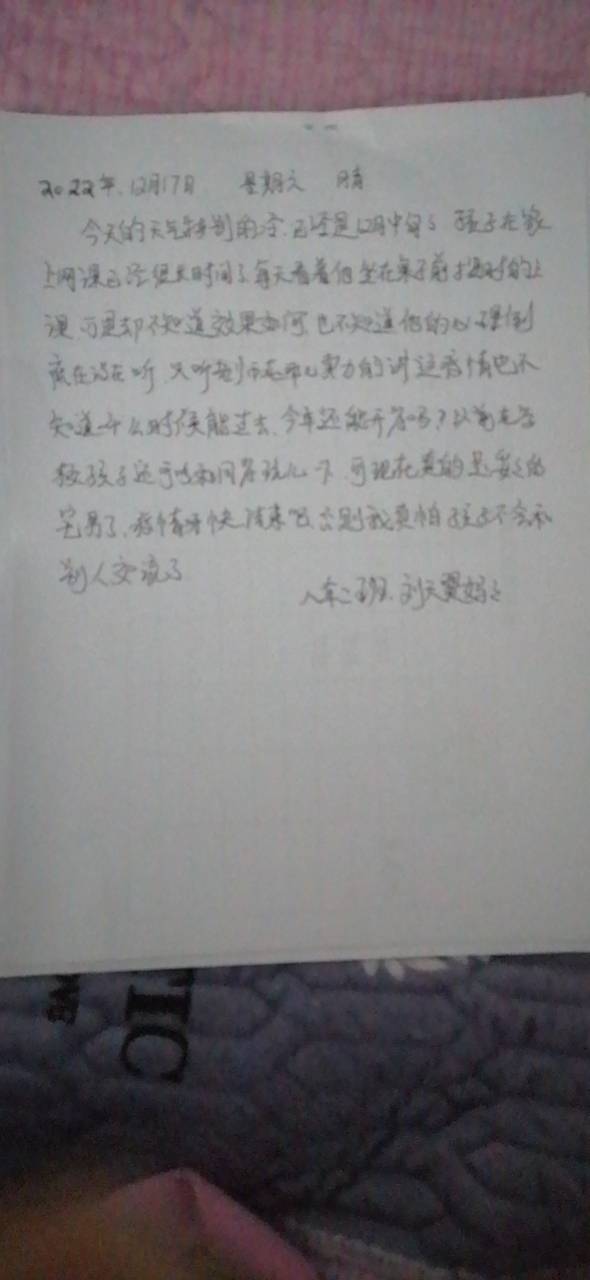 2022年.12月17日 星期六 晴
今天的天气特别的冷.已经是12月中旬了 孩子在家
上网课已经很长时间了每天看着他坐在桌子前按时的上
课 可是却不知道效果如何 也不知道他的心理到
底在没在听 只听到老师很努力的讲 这疫情也不
知道什么时候能过去.今年还能开学吗?以前在学
校孩子还可以和同学玩儿一下 可现在真的是
宅男了.疫情呀快结束吧 否则我真怕孩子不会和
别人交流了
八年二班.刘天翼妈妈
TIC